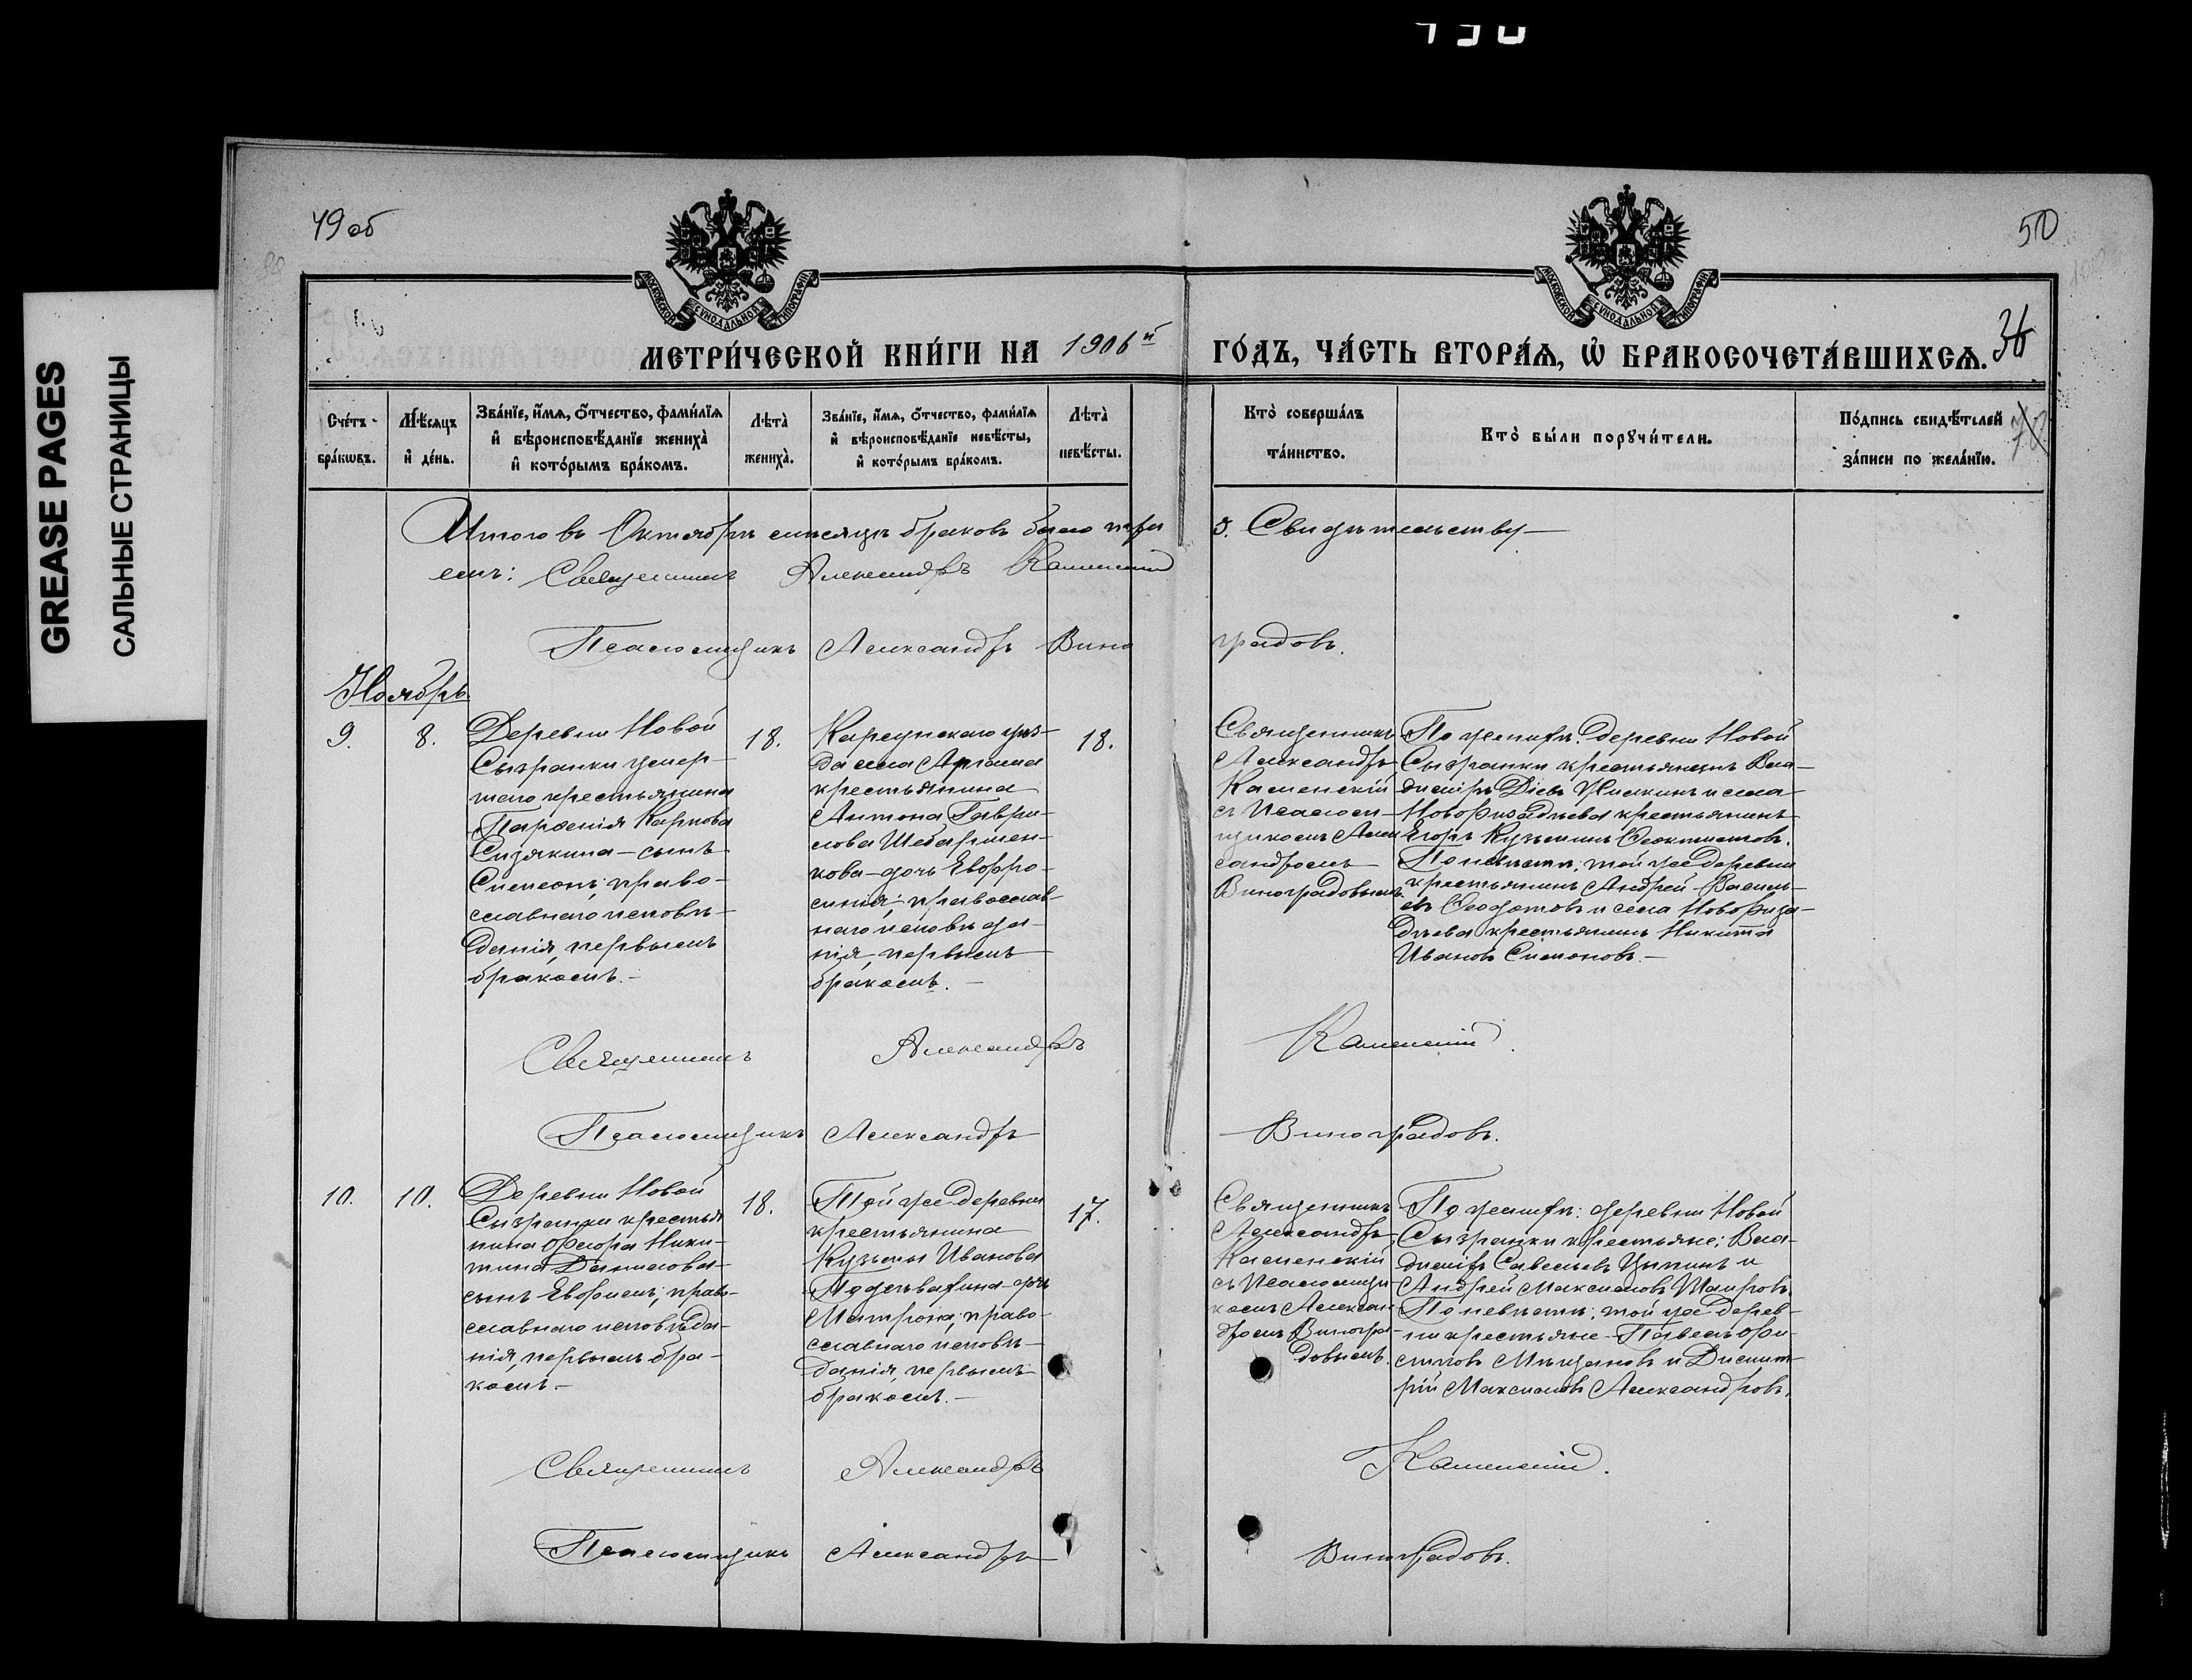 GREASE PAGES
САЛЬНЫЕ СТРАНИЦЫ
49 об
50
МОСКОВСКОЙ СѴНОДАЛЬНОЙ ТИПОГРАФІИ
МОСКОВСКОЙ СѴНОДАЛЬНОЙ ТИПОГРАФІИ
МЕТРИ́ЧЕСКОЙ КНИ́ГИ НА 1906й ГО́ДЪ, ЧА́СТЬ ВТОРА́Ѧ, Ѽ БРАКОСОЧЕТА́ВШИХСѦ. 36
Сче́тъ бра́кѡвъ.
Мѣ́сѧцъ и҆ де́нь.
Зва́нїе, и҆́мѧ, ѻ҆́тчество, фами́лїѧ
и҆ вѣроисповѣ́данїе жениха̀
и҆ кото́рымъ бра́комъ.
Лѣта̀ жениха̀.
Зва́нїе, и҆́мѧ, ѻ҆́тчество, фами́лїѧ
и҆ вѣроисповѣ́данїе невѣ́сты,
и҆ кото́рымъ бра́комъ.
Лѣта̀ невѣ́сты.
Кто̀ соверша́лъ та́инство.
Кто̀ бы́ли порꙋчи́тели.
По́дпись свидѣ́телей за́писи по жела́нїю.
Итого въ Октябрѣ мѣсяцѣ браковъ было три 3. Свидѣтельству-
емъ: Священникъ Александръ Каменскій
Псаломщикъ Александръ Виноградовъ.
Ноябрь.
9.
8.
Деревни Новой
Сызранки умер-
шаго крестьянина
Парѳенія Карпова
Сизякина – сынъ
Симеонъ; право-
славнаго исповѣ-
данія, первымъ
бракомъ.–
18.
Карсунскаго уѣз-
да села Аргаша
крестьянина
Антона Гаври-
лова Шебармен-
кова – дочь Евфро-
синія; православ-
наго исповѣда-
нія, первымъ
бракомъ.–
18.
Священникъ
Александръ
Каменскій
съ Псалом-
щикомъ Алек
сандромъ
Виноградовымъ
По женихѣ: деревни Новой
Сызранки крестьянинъ Вла-
диміръ Діевъ Жилкинъ и села
Новофизадѣева крестьянинъ
Егоръ Кузьминъ Ѳеоктистовъ.
По невѣстѣ: той же деревни
крестьянинъ Андрей Василь-
евъ Ѳедотовъ и села Новофиза-
дѣева крестьянинъ Никита
Ивановъ Симоновъ.–
Священникъ Александръ Каменскій.
Псаломщикъ Александръ Виноградовъ.
10.
10.
Деревни Новой
Сызранки крестья
нина Флора Ники-
тина Данилова–
сынъ Евфимъ; право-
славнаго исповѣда-
нія, первымъ бра-
комъ.–
18.
Той же деревни
крестьянина
Кузьмы Иванова
Поддѣвагина–дочь
Матрона; право-
славнаго исповѣ-
данія, первымъ
бракомъ.–
17.
Священникъ
Александръ
Каменскій
съ Псаломщи
комъ Алексан
дромъ Виногра-
довымъ.
По женихѣ: деревни Новой
Сызранки крестьяне: Вла-
диміръ Савельевъ Цыпинъ и
Андрей Максимовъ Шаировъ.
По невѣстѣ: той же дерев-
ни крестьяне – Павелъ Фи-
липовъ Мѣщановъ и Димит-
рій Максимовъ Александровъ.
Священникъ Александръ Каменскій.
Псаломщикъ Александръ Виноградовъ.